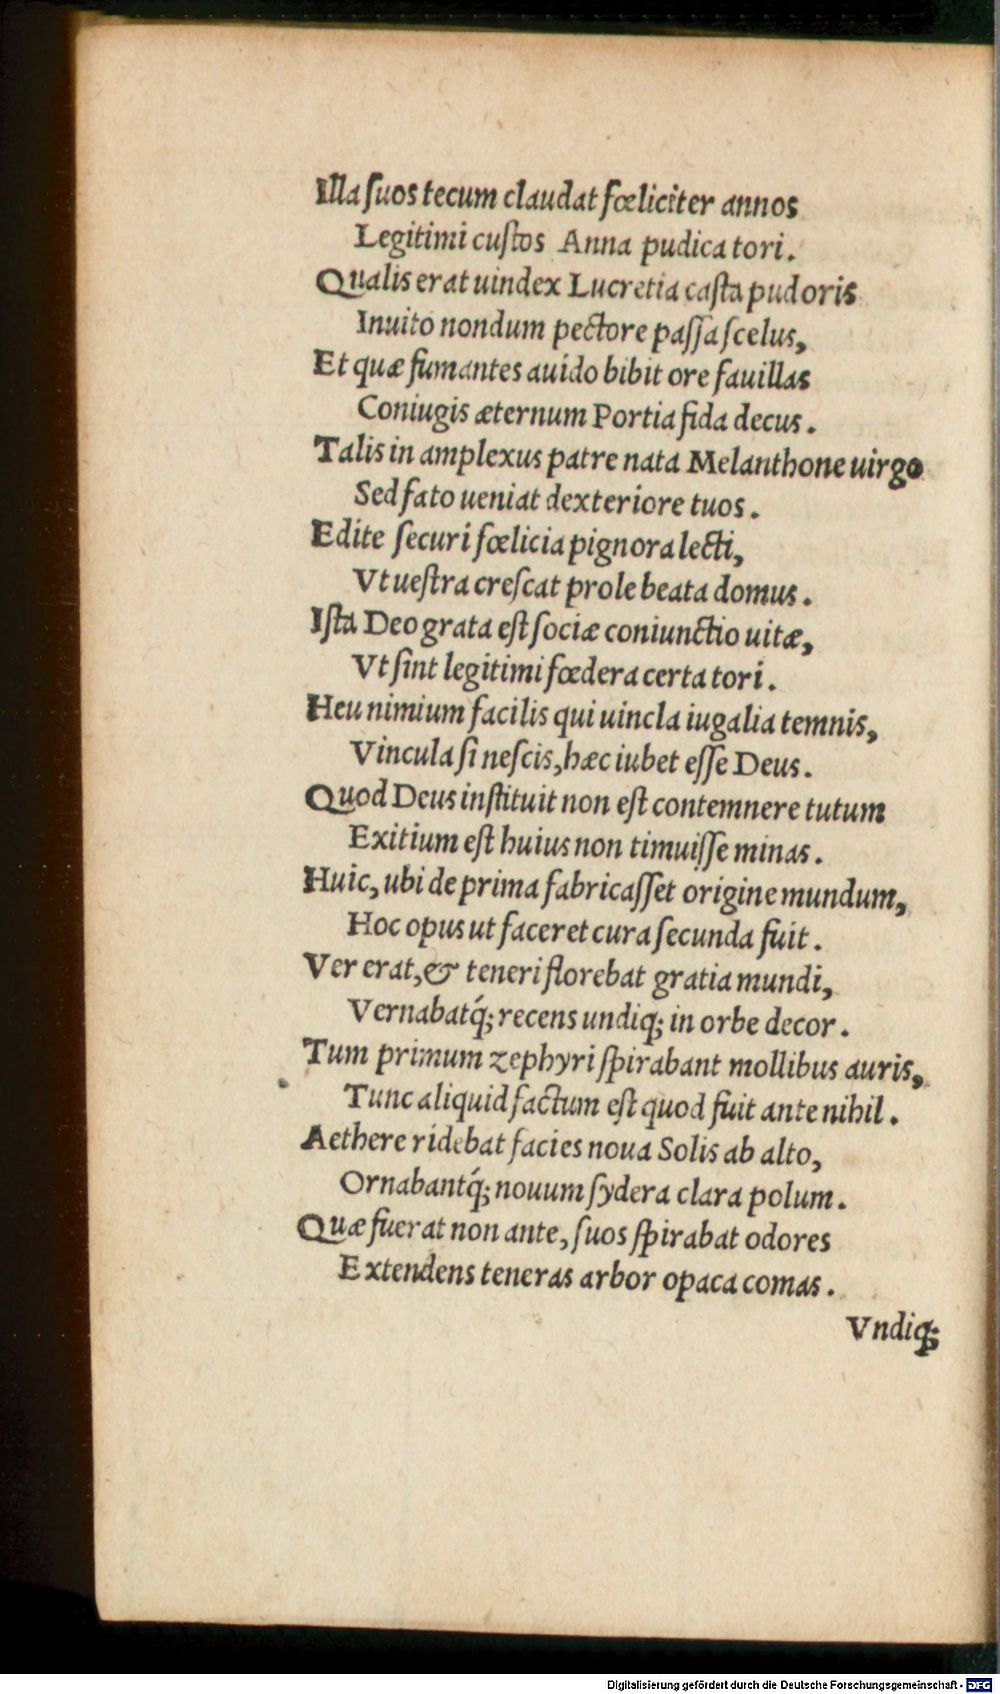 Illa ſuos tecum claudat fœliciter annos
Legitimi cuſtos Anna pudica tori.
Qualis erat uindex Lucretia caſta pudoris
Inuito nondum pectore paſſa ſcelus,
Et quæ fumantes auido bibit ore fauillas
Coniugis æternum Portia fida decus.
Talis in amplexus patre nata Melanthone uirgo
Sed fato ueniat dexteriore tuos.
Edite ſecuri fœlicia pignora lecti,
Vt ueſtra creſcat prole beata domus.
Iſta Deo grata eſt ſociæ coniunctio uitæ,
Vt ſint legitimi fœdera certa tori.
Heu nimium facilis qui uincla iugalia temnis,
Vincula ſi neſcis, hæc iubet eſſe Deus.
Quod Deus inſtituit non eſt contemnere tutum
Exitium eſt huius non timuiſſe minas.
Huic, ubi de prima fabricaſſet origine mundum,
Hoc opus ut faceret cura ſecunda fuit.
Ver erat, & teneri florebat gratia mundi,
Vernabatq́; recens undiq; in orbe decor.
Tum primum zephyri ſpirabant mollibus auris,
Tunc aliquid factum eſt quod fuit ante nihil.
Aethere ridebat facies noua Solis ab alto,
Ornabantq́; nouum ſydera clara polum.
Quæ fuerat non ante, ſuos ſpirabat odores
Extendens teneras arbor opaca comas.
Vndiq;
Digitalisierung gefördert durch die Deutsche Forschungsgemeinschaft - DFG